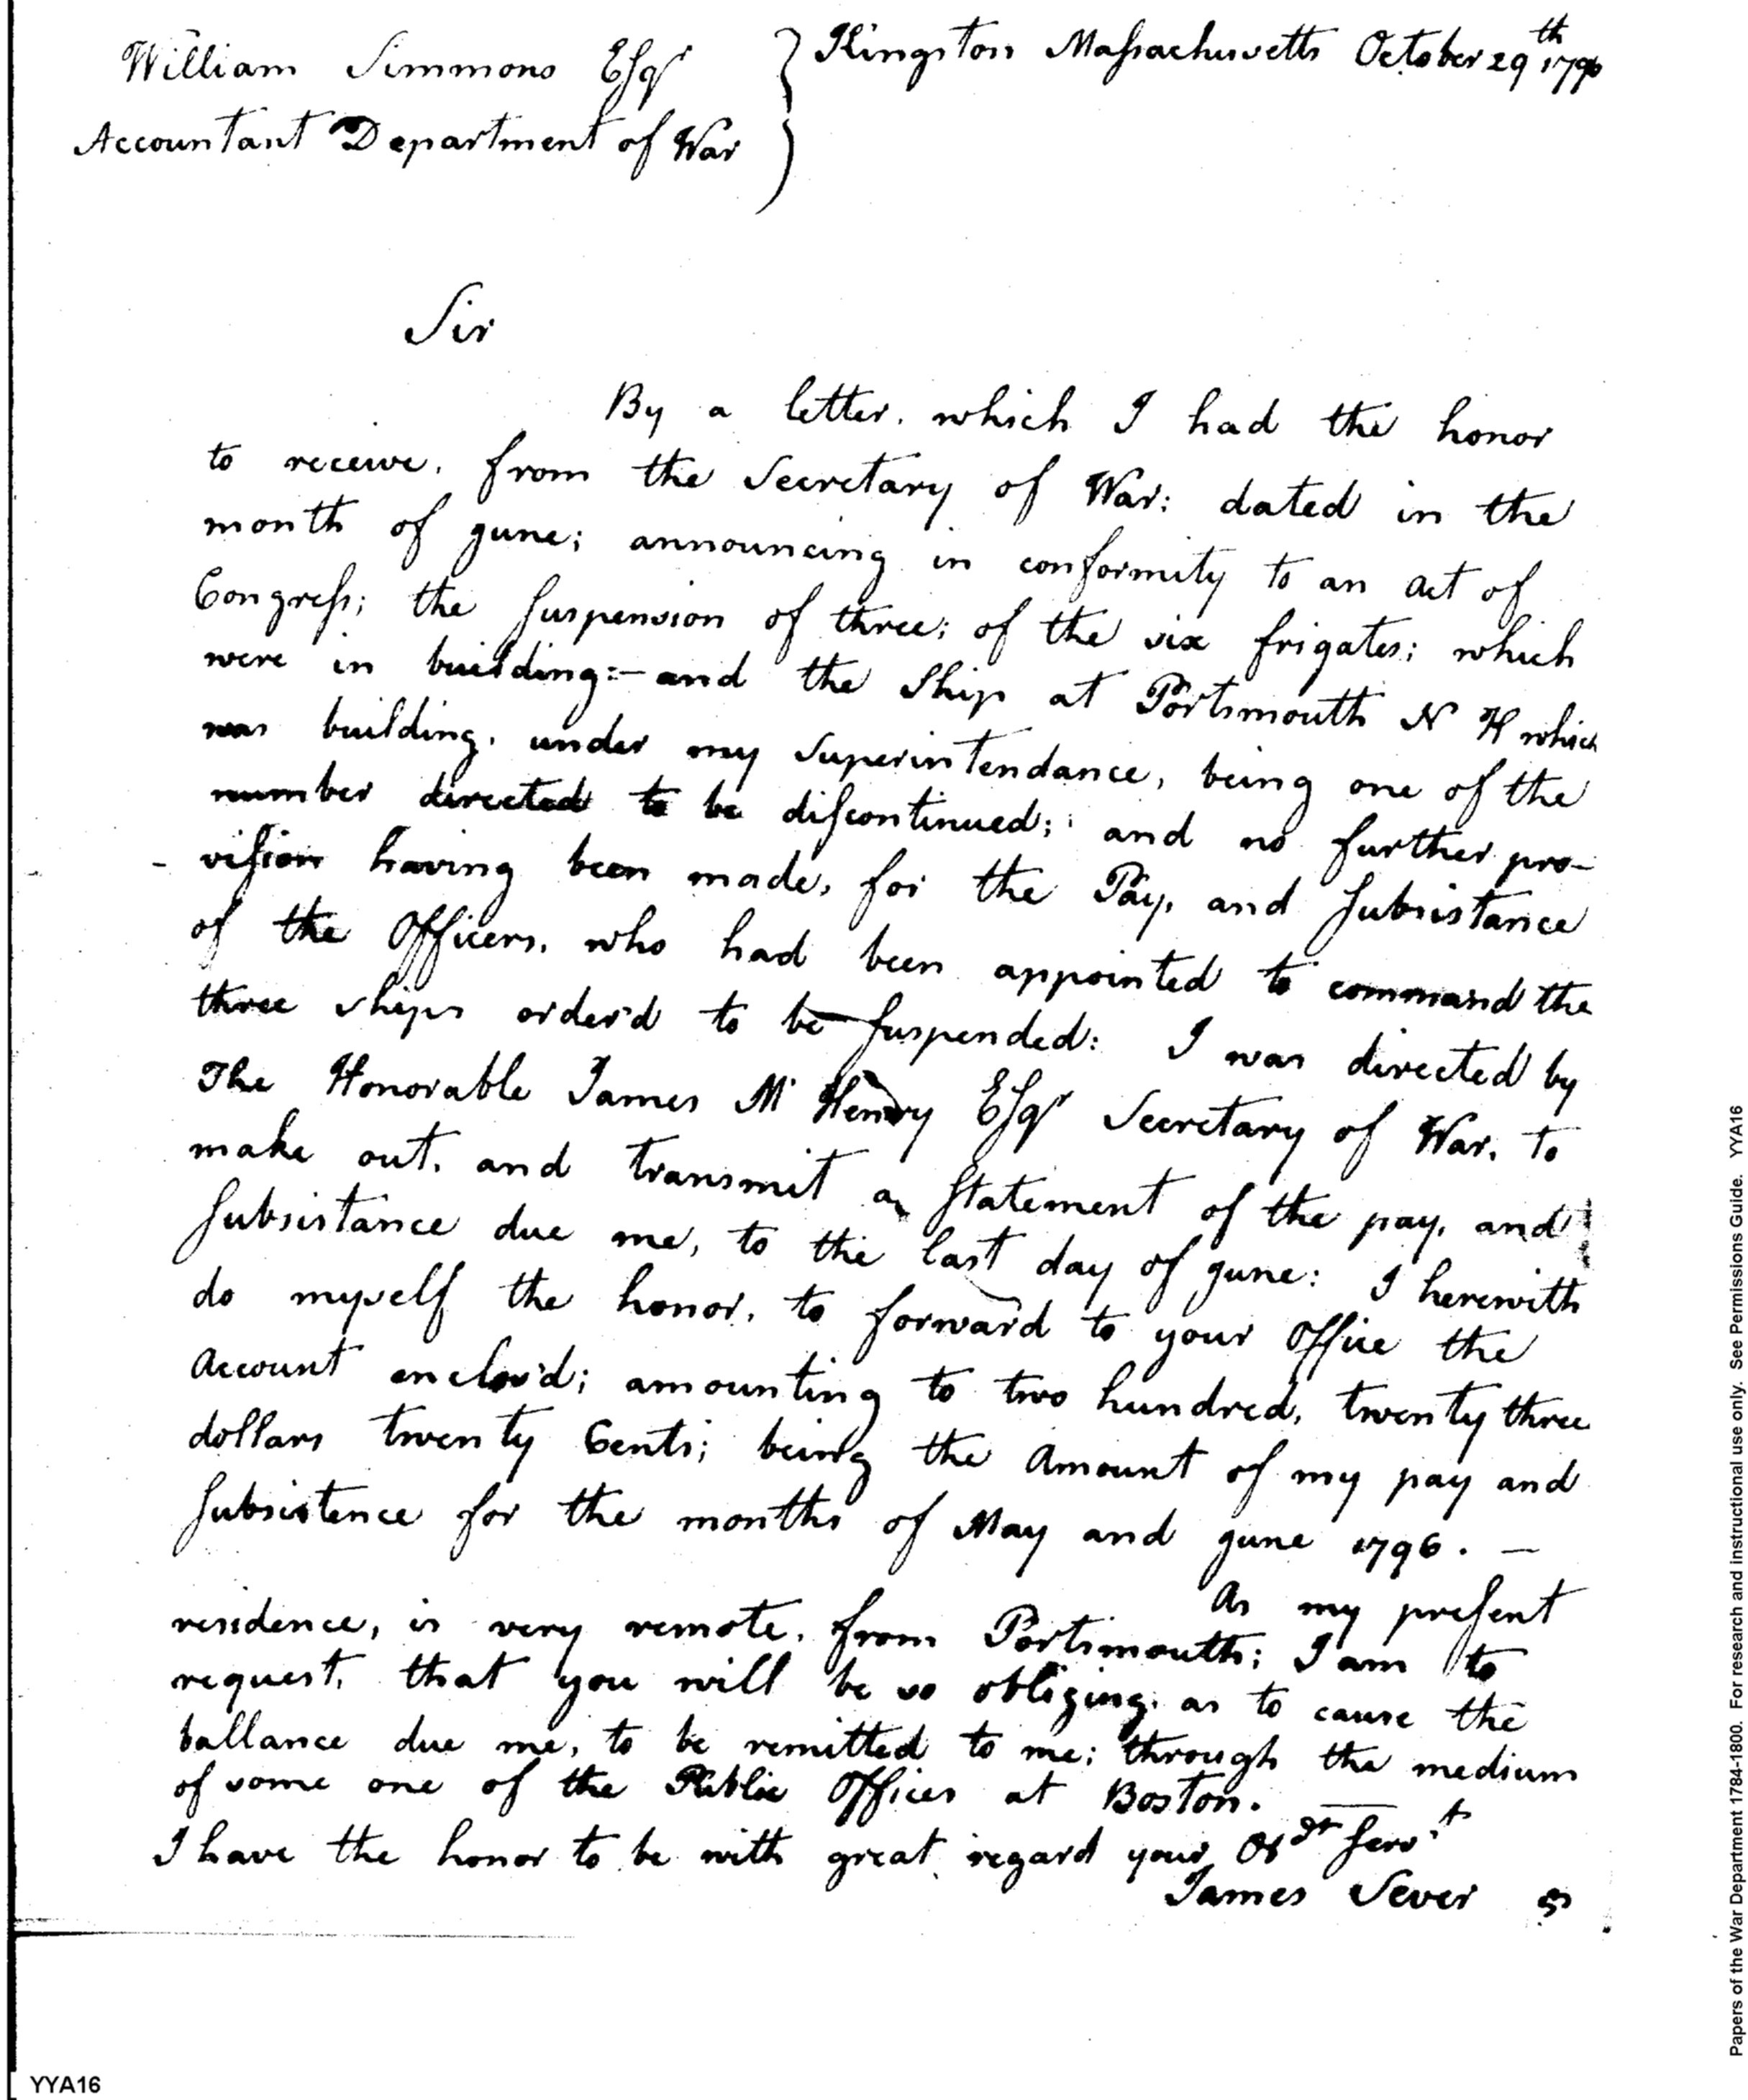 William Simmons Esqr } Kingston Massachusetts October 29th 1796
Accountant Department of War
Sir
By a letter, which I had the honor
to receive, from the Secretary of War: dated in the
month of June; announcing in conformity to an act of
Congress; the suspension of three; of the six frigates; which
were in building:- and the Ship at Portsmouth N H which
was building, under my Superintendance, being one of the
number directed to be discontinued; and no further pro-
-vision having been made, for the Pay, and Subsistance
of the Officers, who had been appointed to command the
three ships order'd to be suspended: I was directed by
The Honorable James Mc Henry Esqr Secretary of War, to
make out, and transmit a Statement of the pay, and
Subsistance due me, to the last day of June: I herewith
do myself the honor, to forward to your Office the
Account enclos'd; amounting to two hundred, twenty three
dollars twenty Cents; being the Amount of my pay and
Subsistence for the months of May and June 1796. —
As my present
residence, is very remote, from Portsmouth; I am to
request, that you will be so obliging, as to cause the
ballance due me, to be remitted to me; through the medium
of some one of the Public Offices at Boston.
I have the honor to be with great regard your Obdt Servt
James Sever
Papers of the War Department 1784-1800. For research and instructional use only. See Permissions Guide. YYA16
YYA16